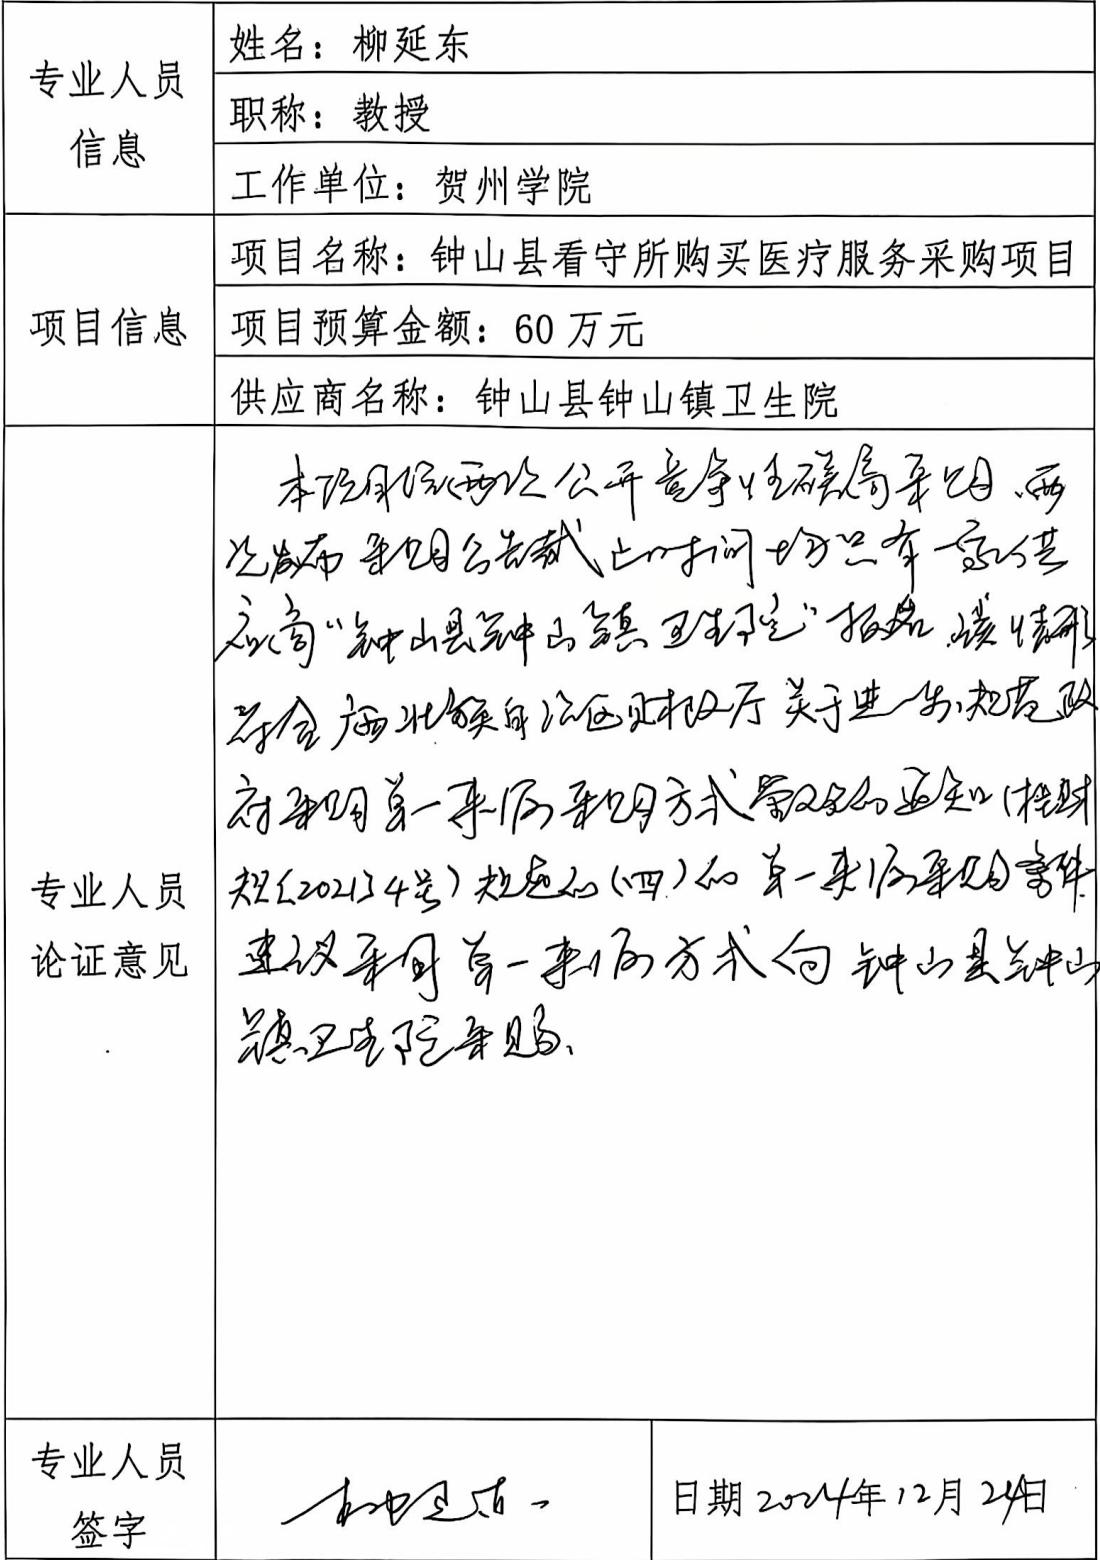 专业人员
信息
姓名：柳延东
职称：教授
工作单位：贺州学院
项目信息
项目名称：钟山县看守所购买医疗服务采购项目
项目预算金额：60万元
供应商名称：钟山县钟山镇卫生院
专业人员
论证意见
本项目经两次公开竞争性磋商采购、两
次发布采购公告截止时间均只有一家供
应商“钟山县钟山镇卫生院”报名，该情形
符合广西壮族自治区财政厅关于进一步规范政
府采购单一来源采购方式管理的通知（桂财
规〔2021〕4号）规范的（四）的单一来源采购条件
建议采用单一来源方式向钟山县钟山
镇卫生院采购、
专业人员
签字
柳延东
日期2024年12月24日